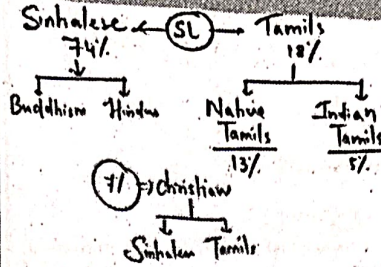 Sinhalese ← SL → Tamils
74% 18%
Buddhism Hindus Native Tamils Indian Tamils
13% 5%
7% ⇒ Christian
Sinhalese Tamils